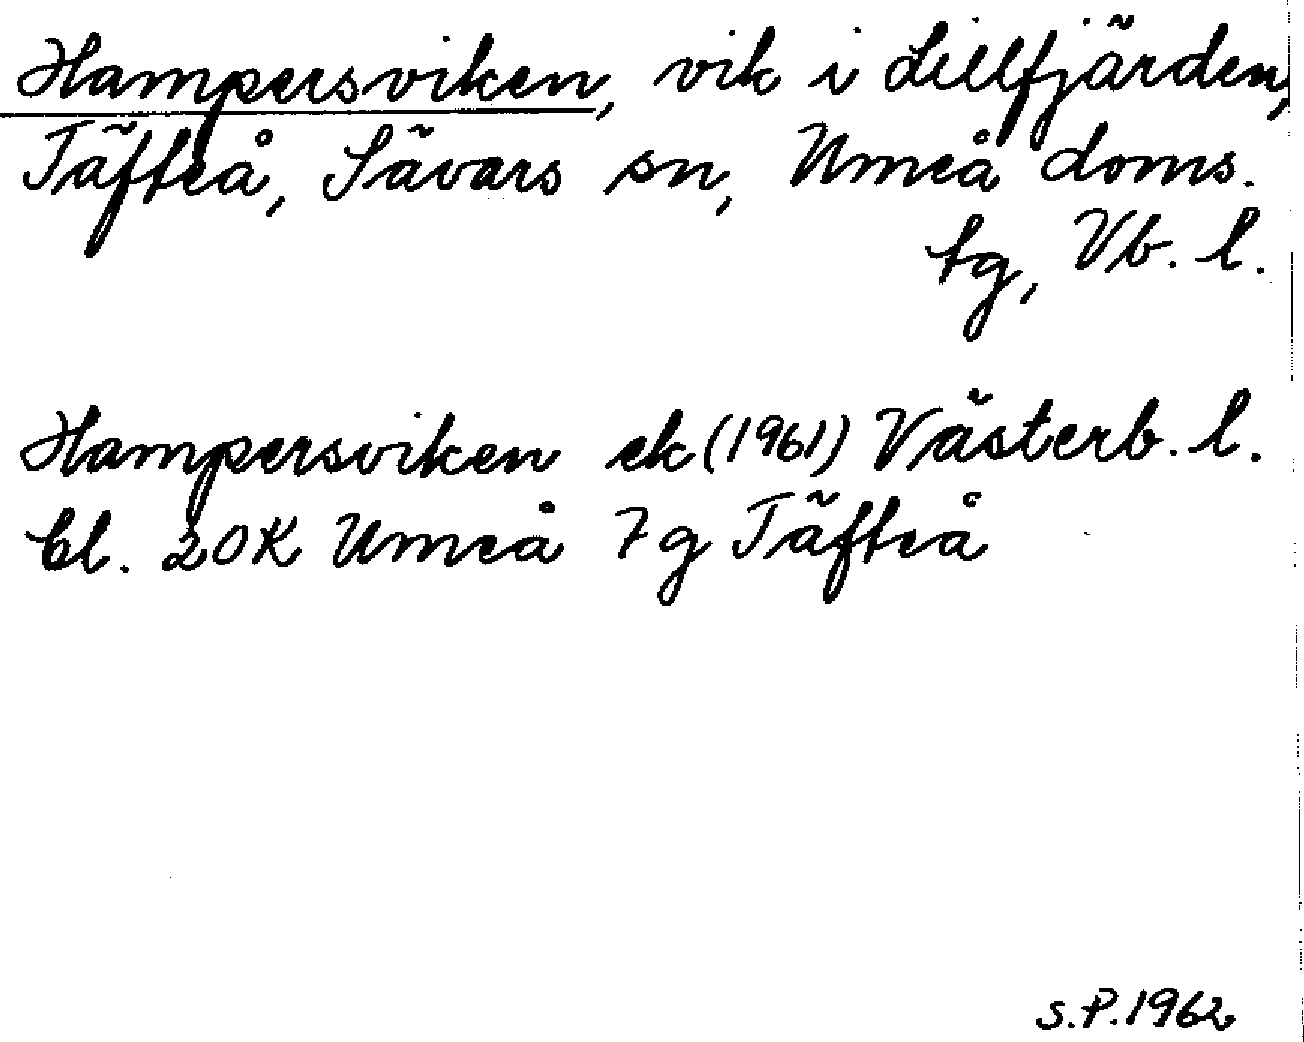 Hampersviken, vik i Lillfjärden,
Täfteå, Sävars sn, Umeå doms.
tg, Vb. l.
Hampersviken ek (1961) Västerb. l.
bl. 20K Umeå 7g Täfteå
S.P. 1962